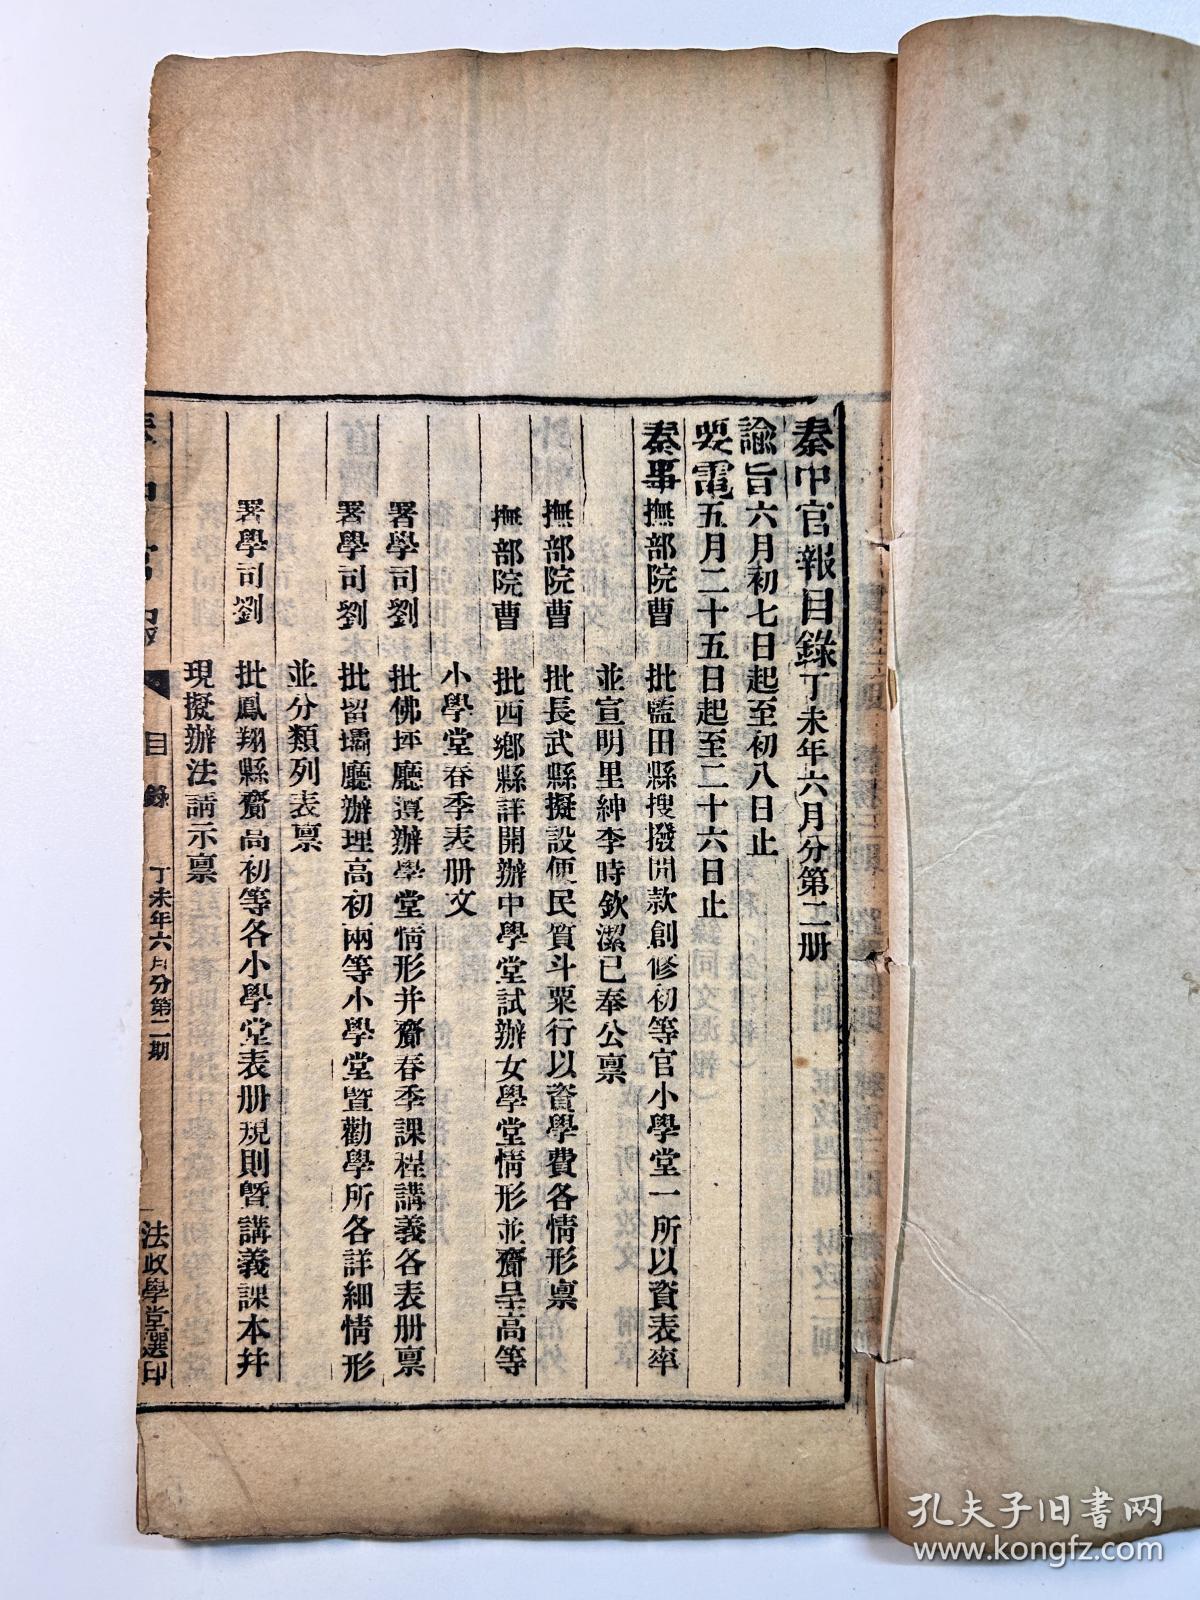 秦中官報目錄丁未年六月分第二册
諭旨六月初七日起至初八日止
要電五月二十五日起至二十六日止
秦事 撫部院曹 批藍田縣搜撥閒款創修初等官小學堂一所以資表率
並宣明里紳李時欽潔已奉公稟
撫部院曹 批長武縣擬設便民質斗粟行以資學費各情形稟
撫部院曹 批西鄉縣詳開辦中學堂試辦女學堂情形並齎呈高等
小學堂春季表册文
署學司劉 批佛坪廳遵辦學堂情形并齎春季課程講義各表册稟
署學司劉 批留壩廳辦理高初兩等小學堂暨勸學所各詳細情形
並分類列表稟
署學司劉 批鳳翔縣齎高初等各小學堂表册規則暨講義課本幷
現擬辦法請示稟
目錄 丁未年六月分第二期 法政學堂選印
孔夫子旧书网
www.kongfz.com